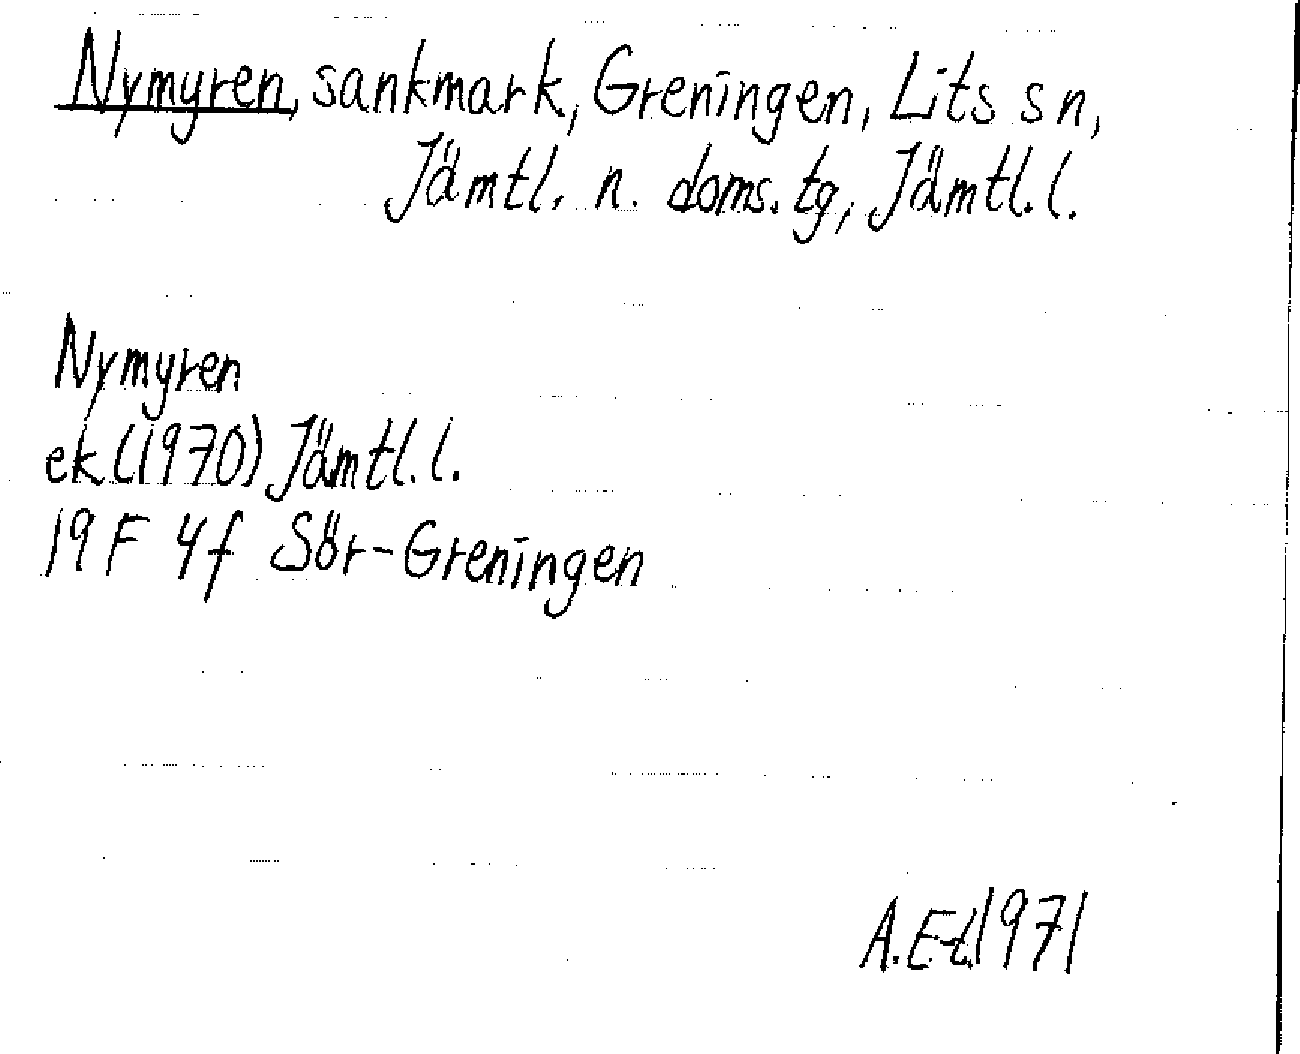 Nymyren, sankmark, Greningen, Lits sn,
Jämtl. n. doms. tg, Jämtl. l.
Nymyren
ek (1970) Jämtl. l.
19 F 4f Sör-Greningen
A. E-t 1971